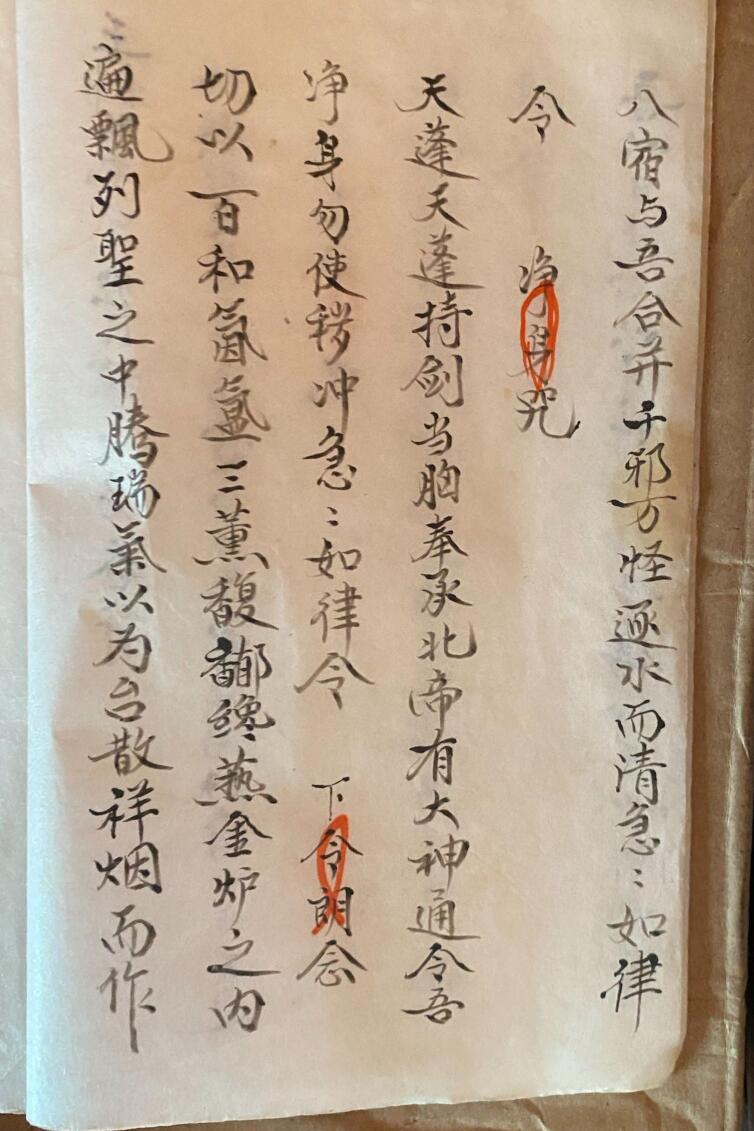 八宿与吾合并千邪万怪逐水而清急〻如律
令 净身咒
天蓬天蓬持剑当胸奉承北帝有大神通令吾
净身勿使秽冲急〻如律令 下令朗念
切以百和氤氲三薰馥郁才爇金炉之内
遍飘列聖之中腾瑞氣以为台散祥烟而作